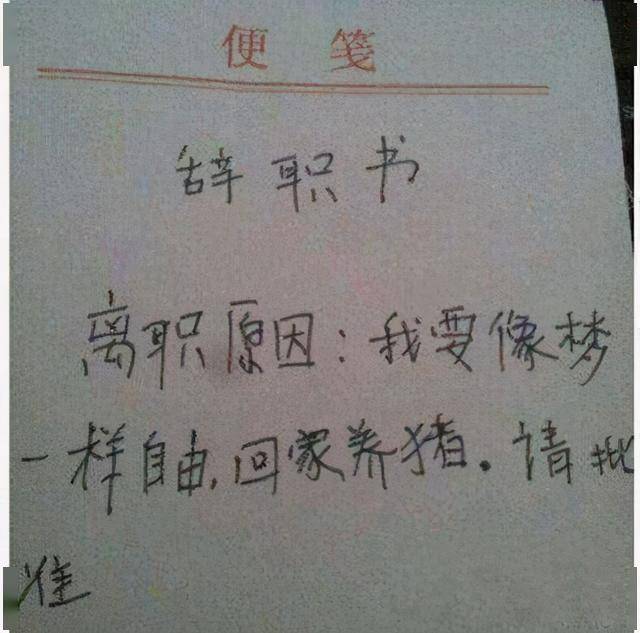 便 笺
辞职书
离职原因:我要像梦
一样自由,回家养猪。请批
准